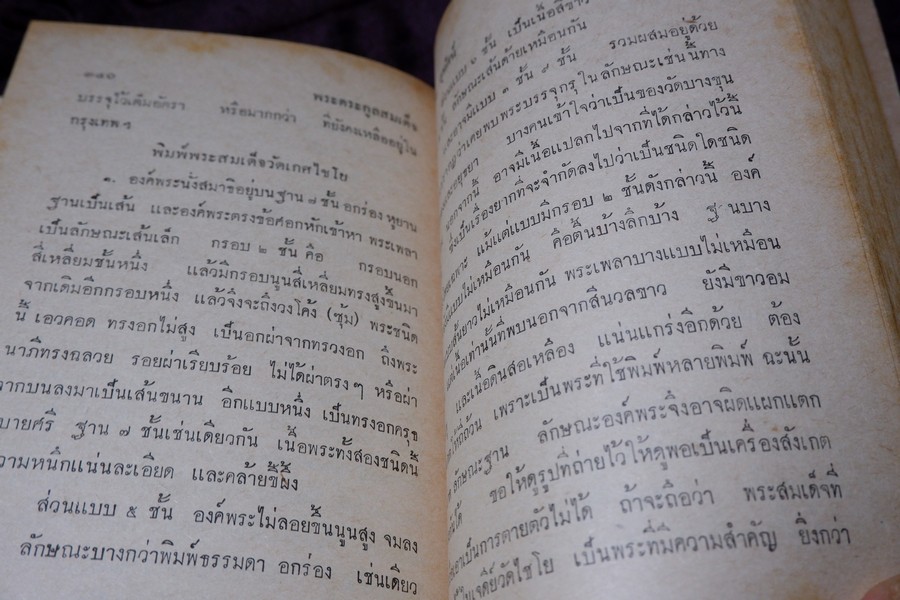 ๓๘๐
พระตระกูลสมเด็จ
บรรจุไว้เต็มอัตรา หรือมากกว่า ที่ยังคงเหลืออยู่ใน
กรุงเทพ ฯ
พิมพ์พระสมเด็จวัดเกศไชโย
๑. องค์พระนั่งสมาธิอยู่บนฐาน ๗ ชั้น อกร่อง หูยาน
ฐานเป็นเส้น และองค์พระตรงข้อศอกหักเข้าหา พระเพลา
เป็นลักษณะเส้นเล็ก กรอบ ๒ ชั้น คือ กรอบนอก
สี่เหลี่ยมชั้นหนึ่ง แล้วมีกรอบนูนสี่เหลี่ยมทรงสูงขึ้นมา
จากเดิมอีกกรอบหนึ่ง แล้วจึงจะถึงวงโค้ง (ซุ้ม) พระชนิด
นี้ เอวคอด ทรงอกไม่สูง เป็นอกผ่าจากทรวงอก ถึงพระ
นาภีทรงฉลวย รอยผ่าเรียบร้อย ไม่ได้ผ่าตรงๆ หรือผ่า
จากบนลงมาเป็นเส้นขนาน อีกแบบหนึ่ง เป็นทรงอกครุธ
บายศรี ฐาน ๗ ชั้นเช่นเดียวกัน เนื้อพระทั้งสองชนิดนี้
ความหนึกแน่นละเอียด และคล้ายขี้ผึ้ง
ส่วนแบบ ๕ ชั้น องค์พระไม่ลอยขึ้นนูนสูง จมลง
ลักษณะบางกว่าพิมพ์ธรรมดา อกร่อง เช่นเดียว
๒ ชั้น เป็นเนื้อสีขาว
ลักษณะเส้นด้ายเหมือนกัน
แบบ ๓ ชั้น ๙ ชั้น รวมผสมอยู่ด้วย
ว่าเคยพบ พระบรรจุกรุ ใน ลักษณะเช่นนี้ทาง
บางคนเข้าใจว่าเป็นของวัดบางขุน
นอกจากนี้ อาจมีเนื้อแปลกไปจากที่ได้กล่าวไว้นี้
ซึ่งเป็นเรื่องยากที่จะจำกัดลงไปว่าเป็นชนิดใดชนิด
เฉพาะ แม้แต่แบบมีกรอบ ๒ ชั้นดังกล่าวนี้ องค์
แบบไม่เหมือนกัน คือตื้นบ้างลึกบ้าง ฐานบาง
สั้นยาวไม่เหมือนกัน พระเพลาบางแบบไม่เหมือน
เนื้อเท่านั้นที่พบนอกจากสีนวลขาว ยังมีขาวอม
และเนื้อดินสอเหลือง แน่นแกร่งอีกด้วย ต้อง
ให้ถี่ถ้วน เพราะเป็นพระที่ใช้พิมพ์หลายพิมพ์ ฉะนั้น
ลักษณะฐาน ลักษณะองค์พระจึงอาจผิดแผกแตก
ได้ ขอให้ดูรูปที่ถ่ายไว้ให้ดูพอเป็นเครื่องสังเกต
เอาเป็นการตายตัวไม่ได้ ถ้าจะถือว่า พระสมเด็จที่
ในเจดีย์วัดไชโย เป็นพระที่มีความสำคัญ ยิ่งกว่า